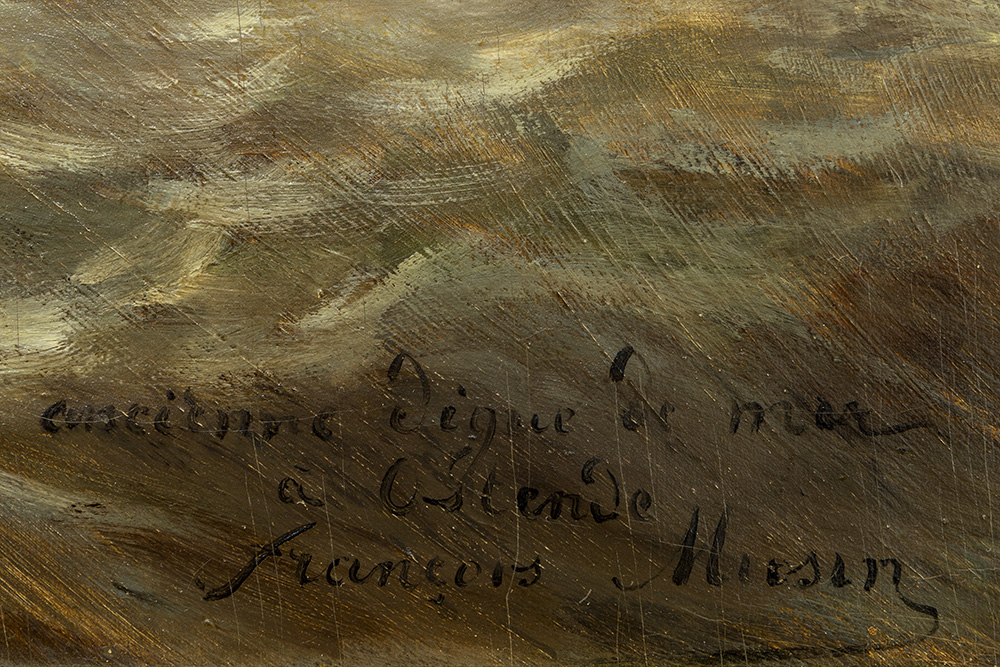 ancienne digue de mer
à Ostende
François Musin